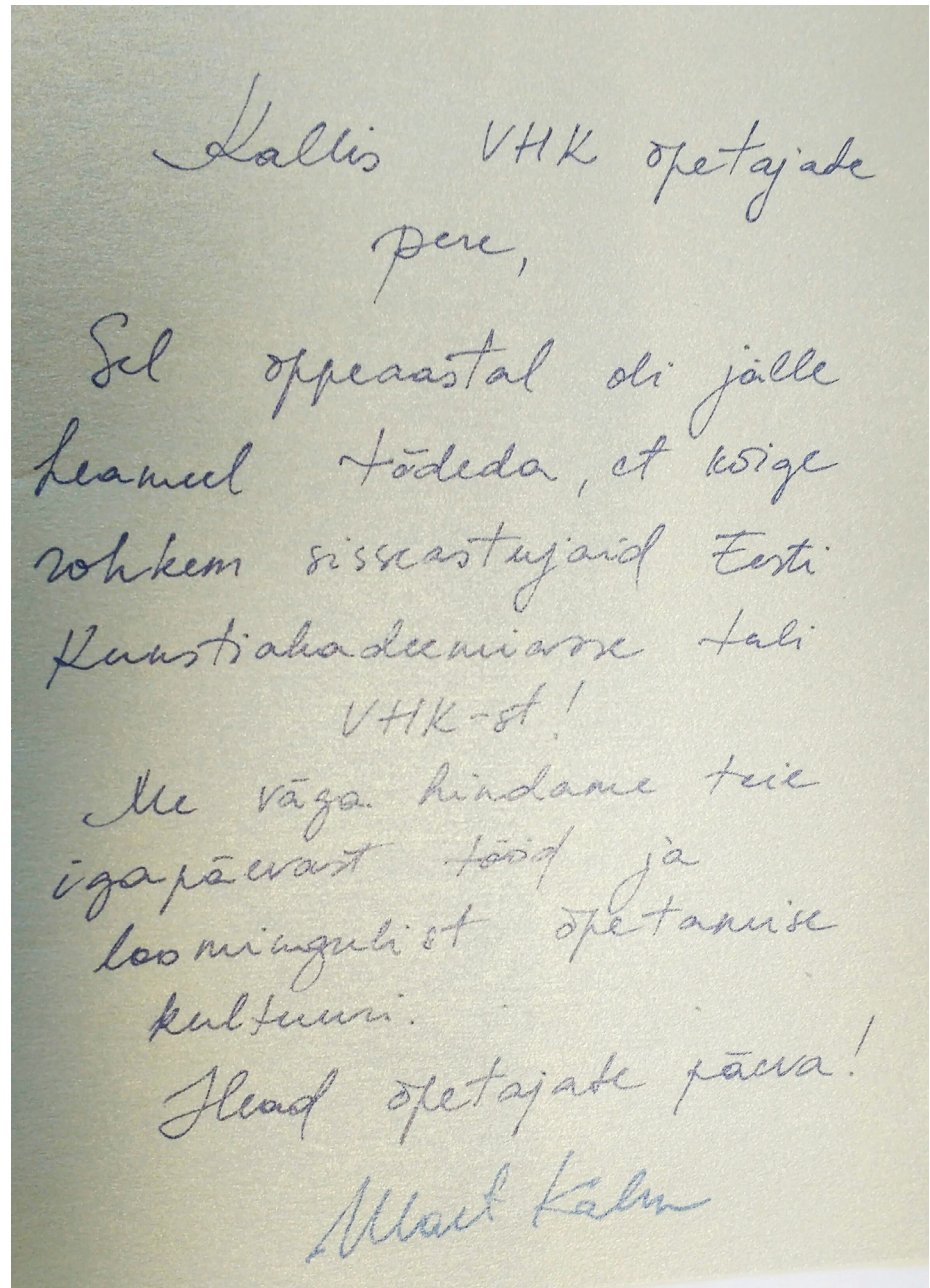 Kallis VHK õpetajate
pere,
Sel õppeaastal oli jälle
heameel tõdeda, et kõige
rohkem sisseastujaid Eesti
Kunstiakadeemiasse tuli
VHK-st!
Me väga hindame teie
igapäevast tööd ja
loomingulist õpetamise
kultuuri.
Head õpetajate päeva!
Mart Kalm